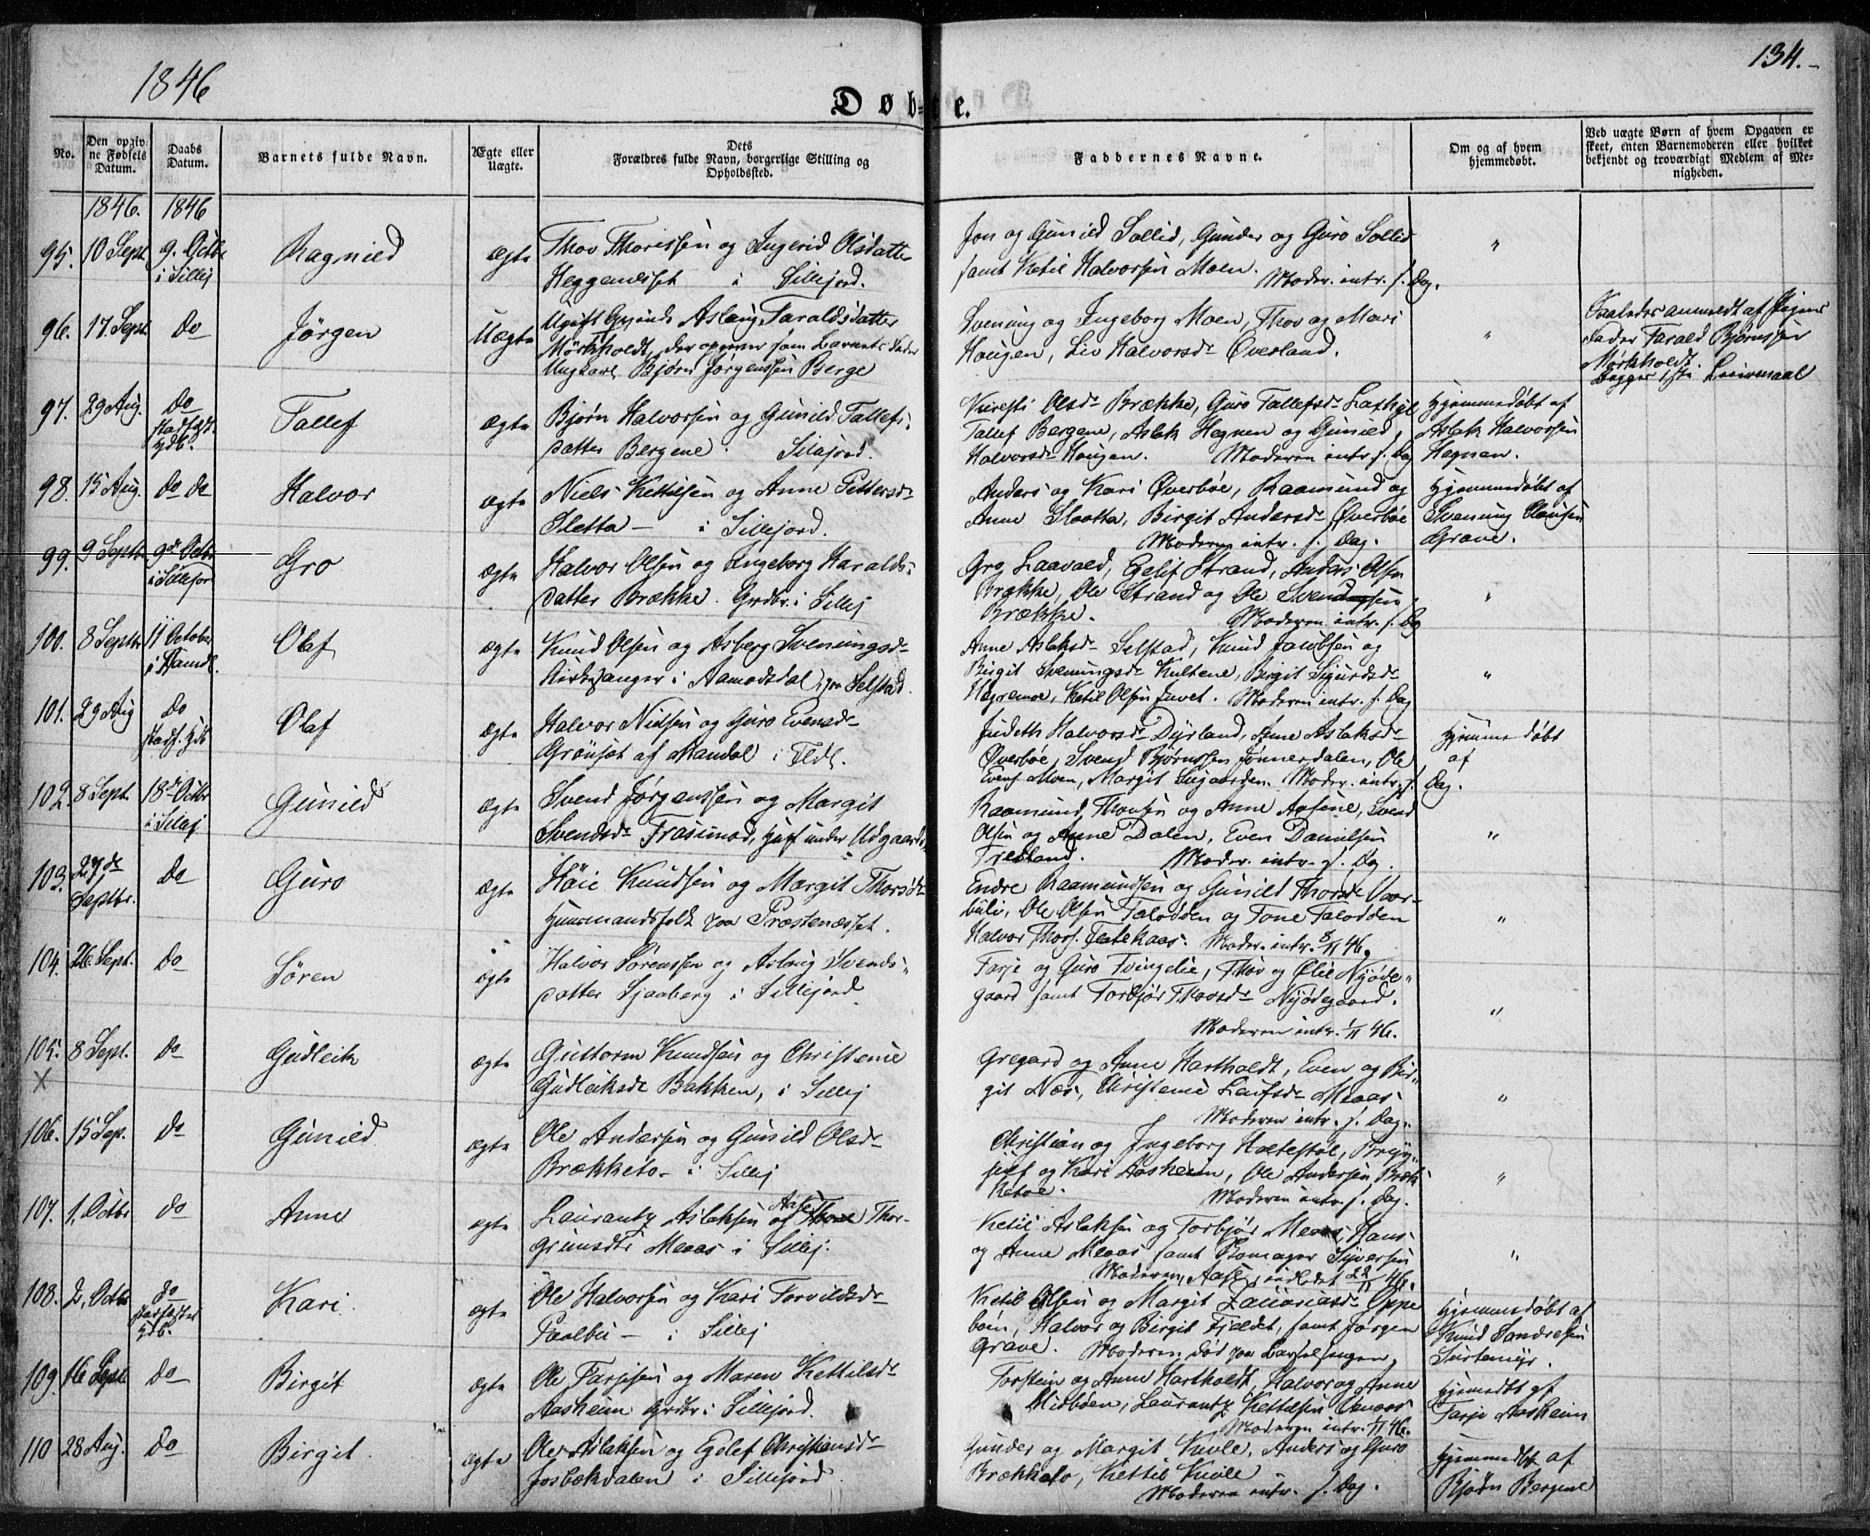 1846
134.
Døbte.
No.
Den opgivne Fødsels Datum.
Daabs Datum.
Barnets fulde Navn.
Ægte eller Uægte.
Dets Forældres fulde Navn, borgerlige Stilling og Opholdssted.
Faddernes Navne.
Om og af hvem hjemmedøbt.
Ved uægte Børn af hvem Opgaven er skeet, enten Barnemoderen eller hvilket bekjendt og troværdigt Medlem af Menigheden.
1846. 1846
95. 10 Sept. 9. Octbr i Sillej Ragnild ægte
Thov Thorissen og Ingerid Olsdatter
Heggeneset i Sillejord.
Jon og Gunild Sollid, Gunder og Guro Sollid
samt Ketil Halvorsen Moen. Moder. intr. s. Dag.
"
96. 17. Sept. do Jörgen Uægte
Ugift Aslaug Taraldsdatter
Mörkholdt, der opgiver som Barnets Fader
Ungkarl Bjørn Jørgenssen Berge
Svenung og Ingeborg Moen, Thov og Mari
Hougen, Liv Halvorsd. Øverland.
"
anmeldt af Pigens
Fader Tarald Bjørnssen
Mørkholdt.
Begges 1ste Leiermaal
97. 29 Aug. do stadfæst. hjdb. Tallef ægte
Bjørn Halvorsen og Gunild Tallefs-
datter Bergene. Sillejord.
Kiersti Olsd. Brække, Guro Tallefsd.
Tallef Bergene, Aslak Hegnen og Gunild
Halvorsd. Hougen. Moderen intr. s. Dag
Hjemmedøbt af
Aslak Halvorsen
Hegnen.
98. 15 Aug. do do Halvor ægte
Niels Kettilsen og Anne Pettersd.
Sletta - i Sillejord.
Anders og Kari Øverbøe, Raamund og
Anne Slaatta, Birgit Andersd. Øverbøe
Moderen intr. s. Dag.
Hjemmedøbt af
Svenung Clausen
Grave.
99. 9 Septbr 9de Octbr i Sillejor Gro ægte
Halvor Olsen og Ingeborg Haralds-
datter Brække. Grdbr. i Sillej
Gro Laavald, Egelif Strand, Anders Olsen
Brække, Ole Strand og Ole Svendsen
Brække. Moderen intr. s. Dag
"
100. 8 Septbr 11 October i Aamdl. Olaf ægte
Knud Olsen og Asberg Svenungsd.
Kirkesanger i Aamodsdal, paa Selstad.
Anne Aslaksd. Selstad, Knud Jacobsen og
Birgit Svenungsd. Kultene, Birgit Sigurdsd.
Hegremoe, Ketil Olsen Juvet. Moderen intr. s. Dag
"
101. 29 Aug do stadf. hjdb Olaf ægte
Halvor Nielsen og Guro Evensd.
Grönset af Mandal i Tldl.
Judeth Halvorsd. Dyrland, Anne Aslaksd.
Øverbøe, Svend Bjørnssen Jønnerdalen, Ole
Evens. Moen, Margit Leigaarden. Moder. intr. s. Dag.
Hjemmedøbt
af
102. 8 Sept. 18de Octbr i Sillej Gunild ægte
Svend Jørgenssen og Margit
Svendsd. Frasimod, Husf. under Udgaarden
Raamund Thovsen og Anne Aasene, Svend
Olsen og Anne Dalen, Even Danielsen
Tredland. Moder. intr. s. Dag.
"
103. 27de Septbr. do Guro ægte
Høie Knudsen og Margit Thorsd.
Huusmandsfolk paa Præstenæsset.
Endre Raamundsen og Gunild Thorsd. Vaar-
buli, Ole Olsen Talodden og Tone Talodden
Halvor Thors. Jentekaas. Moder. intr. 8/11 46.
"
104. 26. Sept. do Søren ægte
Halvor Sørenssen og Aslaug Svends-
datter Sjaaberg i Sillejord.
Tarje og Guro Tvingelie, Thov og Ølie Nyøde-
gaard samt Torbjør Thovsd. Nyødegaard.
Moderen intr. 1/11 46.
"
105. 8 Sept. do Gudleik ægte
X
Guttorm Knudsen og Christense
Gudleiksd. Bakken, i Sillej
Gregard og Anne Hartholdt, Even og Bir-
git Næs, Christense Leifsd. Meaas
Moderen intr. s. Dag.
"
106. 15 Sep. do Gunild ægte
Ole Andersen og Gunild Olsd.
Brækketo - i Sillej
Christian og Ingeborg Haatestøl, Bryn-
julf og Kari Aasheim, Ole Andersen Bræk-
ketoe. Moderen intr. s. Dag.
"
107. 1. Octbr do Anne ægte
Laurantz Aslaksen og Aase Thor-
grimsdtr Meaas i Sillej.
Ketil Aslaksen og Torbjør Meaas, Hans
og Anne Meaas samt Romager Syversen
Moderen, Aase, indledet 22/11 46.
"
108. 2. Octbr do stadfæstet hjdb. Kari. ægte
Ole Halvorsen og Kari Torvildsd.
Paalbu - i Sillej
Ketil Olsen og Margit Zachariasd. Oppe-
boen, Halvor og Birgit Fjeldet, samt Jørgen
Grave. Moderen død paa Barselsengen.
Hjemmedøbt af
Knud Sondresen
Surtemyr.
109. 16 Sept do Birgit ægte
Ole Tarjesen og Maren Kettilsd.
Aasheim Grdbr. i Sillejord.
Torstein og Anne Hartholdt, Halvor og Anne
Midbøen, Laurantz Kettilsen
Moderen intr. 1/11 46.
Hjemdbt af
Tarje Aasheim
110 28 Aug. do Birgit. ægte
Ole Aslaksen og Egelef Christiansd.
Josbækdalen i Sillejord
Gunder og Margit Kivle, Anders og Guro
Brækketo, Kettil Kivle
Moderen intr. s. Dag.
Hjemmedbt af
Bjørn Bergene